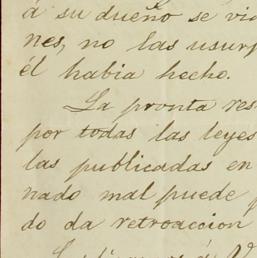 á su dueño se vio
nes, no las usurp
él habia hecho.
La pronta res
por todas las leyes
las publicadas en
nado mal puede
do da retroaccion